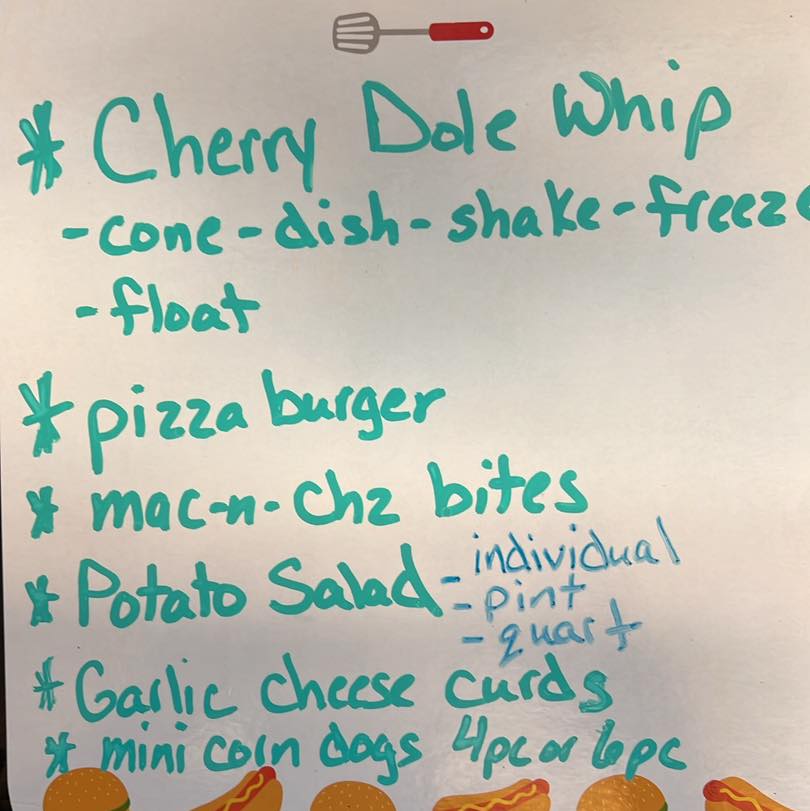 * Cherry Dole Whip
-cone-dish-shake-freeze
-float
* pizza burger
* mac-n-chz bites
* Potato Salad -individual
-pint
-quart
* Garlic cheese curds
* mini corn dogs 4pc or 6pc